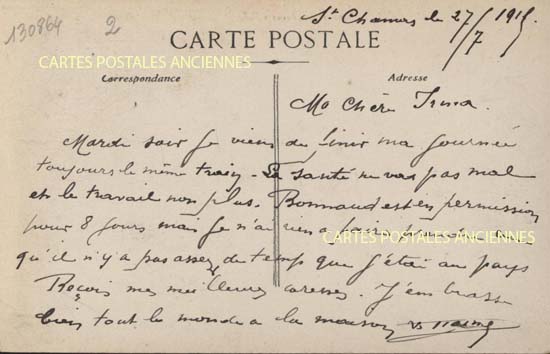 130864
2
St Chamas le 27/7 1915
CARTE POSTALE
CARTES POSTALES ANCIENNES
Correspondance
Adresse
Ma Chère Irma.
Mardi soir je viens de finir ma journée
toujours le même train. La santé ne va pas mal
et le travail non plus. Bonnaud est en permission
pour 8 jours mais je n'ai rien a faire
CARTES POSTALES ANCIENNES
qu'il n'y a pas assez de temps que j'étai au pays
Reçois mes meilleures caresses. J'embrasse
bien tout le monde a la maison